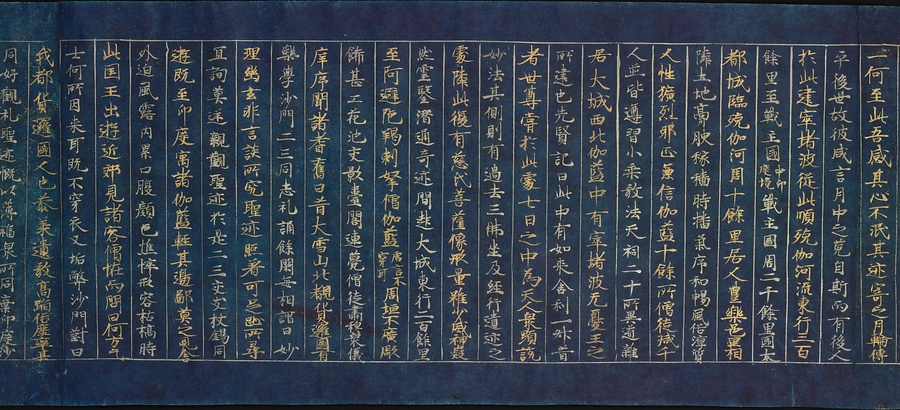 一何至此吾感其心不泯其迹寄之月輪傳
乎後世故彼咸言月中之菟自斯而有後人
於此建窣堵波從此順殑伽河流東行三百
餘里至戰主國中印度境戰主國周二千餘里國大
都城臨殑伽河周十餘里居人豐樂邑里相
隣土地膏腴稼穡時播氣序和暢風俗淳質
人性獷烈邪正兼信伽藍十餘所僧徒減千
人並皆遵習小乘教法天祠二十所異道雜
居大城西北伽藍中有窣堵波无憂王之
所建也先賢記曰此中有如來舍利一升昔
者世尊嘗於此處七日之中為天人衆顯說
妙法其側則有過去三佛坐及經行遺迹之
處隣此復有慈氏菩薩像形量雖少威神嶷
然靈鑒潛通奇迹間起大城東行二百餘里
至阿避陀羯剌拏僧伽藍唐言不穿耳周垣不廣彫
飾甚工花池交影臺閣連甍僧徒肅穆衆儀
庠序聞諸耆舊曰昔大雪山北覩貨邏國有
樂學沙門二三同志礼誦餘閑每相謂曰妙
理幽玄非言談所究聖迹昭著可足趾所尋
宜詢莫逆親觀聖迹於是二三交友杖錫同
遊既至印度寓諸伽藍輕其邊鄙莫之見舍
外迫風露內累口腹顏色憔悴形容枯槁時
此国王出遊近郊見諸客僧恠而問曰何方乞
士何所因来耳既不穿衣又垢弊沙門對曰
我覩貨邏國人也恭承遺教高蹈俗塵率其
同好觀礼聖迹慨以薄福衆所同棄印度沙